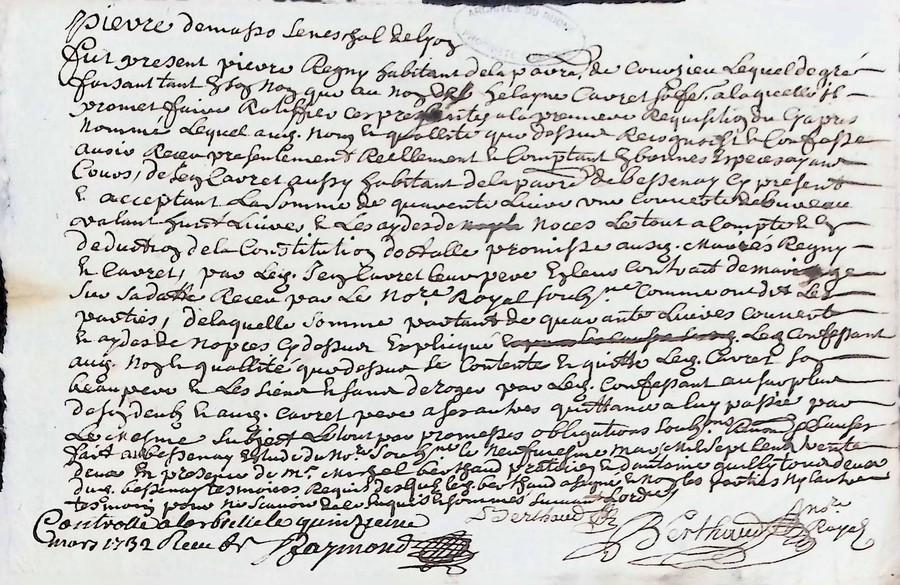 pierre demasso seneschal de lyon
Fut present pierre Regny habitant de la parr.e de Courzieu Lequel de gré
faisant tant en son nom que au nom des helayne Cavret sa fe. a laquelle il
promet faire Ratiffier ces presentes a la premiere Requisition du Cy apres
nommé, Lequel auq. nom & quallité que dessus Recognoist & Confesse
avoir Receu presentement Reellement & Comptant En bonnes Especes ayant
Cours, de Jean Cavret aussy habitant de la parre de bessenay Cy present
& acceptant La somme de quarente Livre une Couverte de bureau
valant huict Livres & Les aydes de noces Le tout a Compte & En
deduction de la Constitution dottalle promisse ausd. mariés Regny
& Cavret, par Led. Jean Cavret leur pere En leur Contrait de mariage
Sur sa datte Receu par Le No.re Royal soub.né Comme ont dit Les
parties, de laquelle somme partant de quarante Livres Couverte
& aydes de nopces Cy dessus Expliqué Led. Confessant
auq. nom & quallité que dessus se Contente & quitte Led. Cavret son
beau pere & Les siens En faveur de Roger par Led. Confessant au surplus
de son deub & aud. Cavret pere a ses autres quittance a luy passée par
Le mesme Subject Le tout par promesses obligations soubmon Renon & Clauses
fait aud bessenay Estude du No.re soub.né le neufviesme mars mil sept cent trente
deux En presence de m.re Michel berthaud praticien & d'antoine quilly tous deux
dud. bessenay tesmoins Requis desquels led. berthaud a signé & Non les parties ny l'autre
tesmoin pour ne scavoir Ecrire Enquis & sommés suivant L'ordce
Controllé a larbresle le quinzieme
mars 1732 Receu
Raymond
Berthaud
Berthaud
No.re
Royal